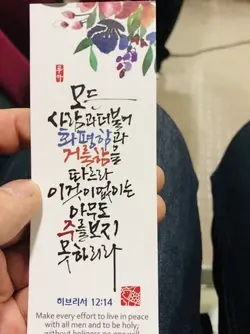 모든
사람과더불어
화평함과
거룩함을
따르라
이것이없이는
아무도
주를보지
못하리라
히브리서 12:14
Make every effort to live in peace
with all men and to be holy;
without holiness no one will